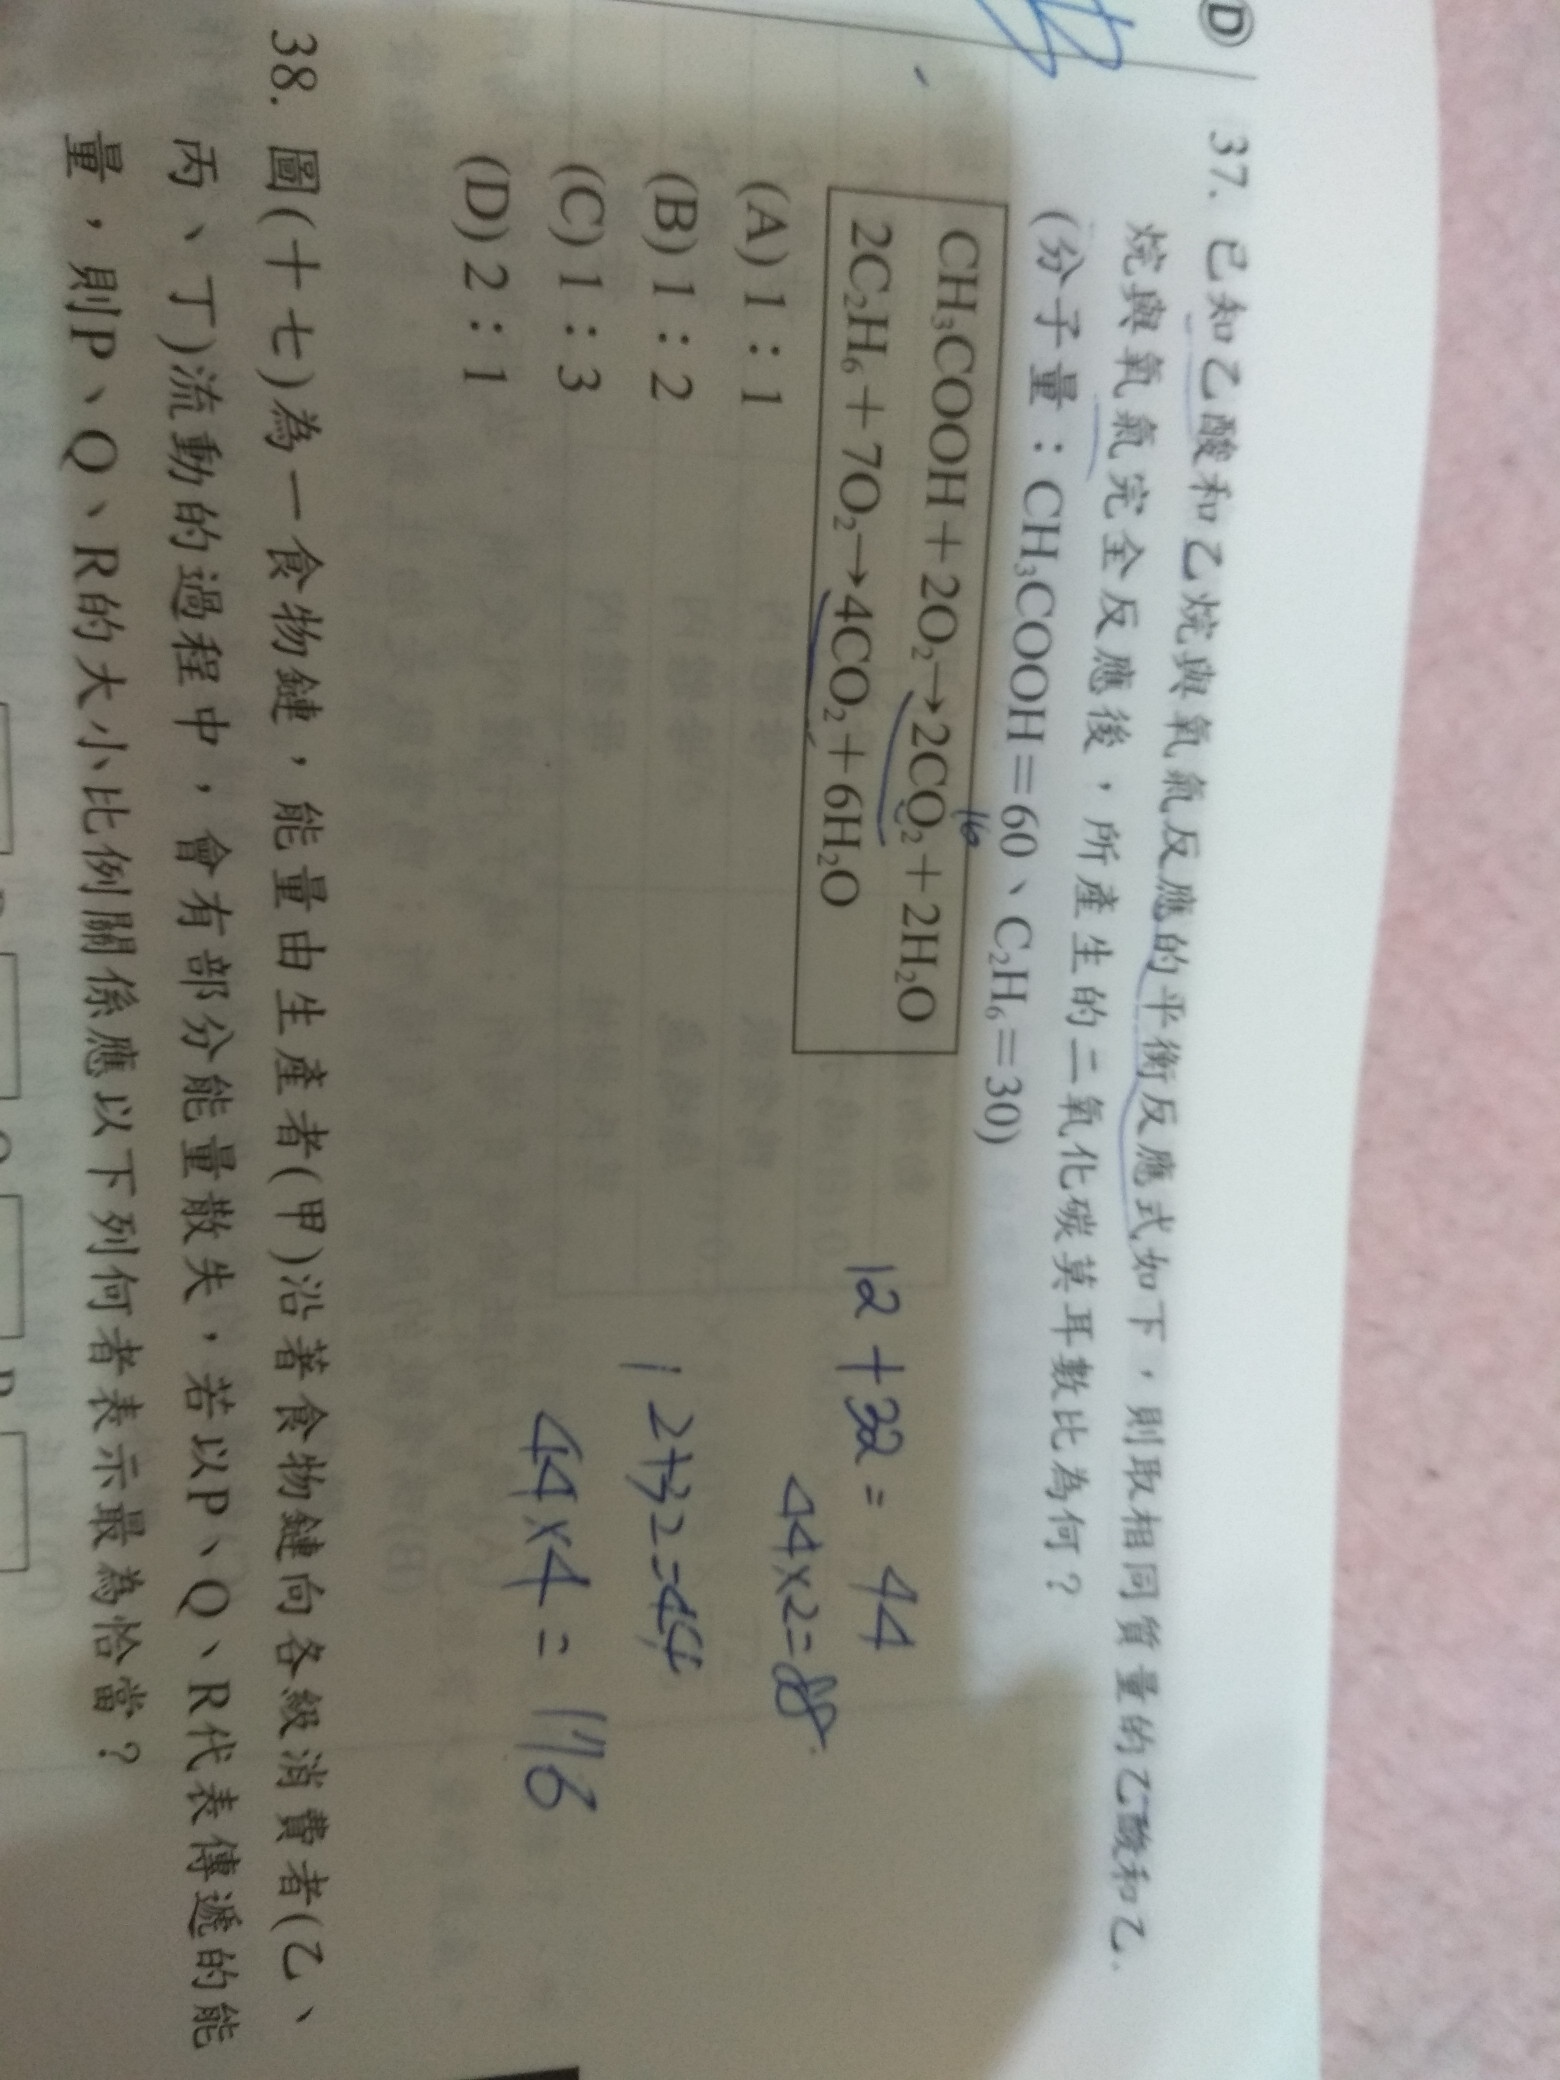 D
37. 已知乙酸和乙烷與氧氣反應的平衡反應式如下，則取相同質量的乙酸和乙
烷與氧氣完全反應後，所產生的二氧化碳莫耳數比為何？
(分子量：CH₃COOH＝60、C₂H₆＝30)
16
CH₃COOH＋2O₂→2CO₂＋2H₂O
2C₂H₆＋7O₂→4CO₂＋6H₂O
12+32=44
44×2=88
(A) 1：1
(B) 1：2
12+32=44
(C) 1：3
44×4=176
(D) 2：1
38. 圖(十七)為一食物鏈，能量由生產者(甲)沿著食物鏈向各級消費者(乙、
丙、丁)流動的過程中，會有部分能量散失，若以P、Q、R代表傳遞的能
量，則P、Q、R的大小比例關係應以下列何者表示最為恰當？